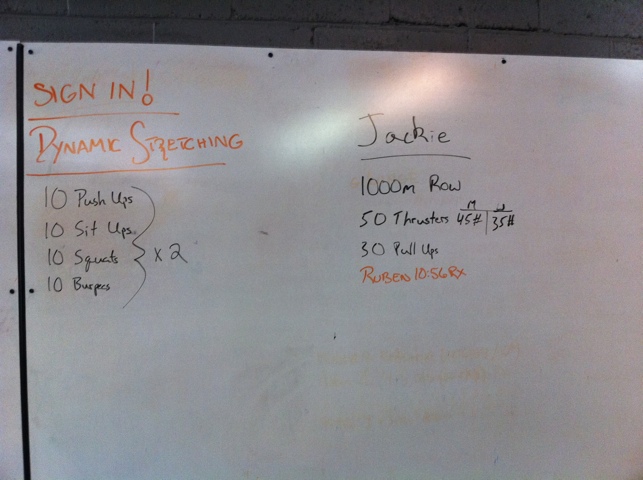 SIGN IN!
DYNAMIC STRETCHING
10 Push Ups
10 Sit Ups
10 Squats
10 Burpees
x 2
Jackie
1000m Row
M
50 Thrusters 45# 35#
30 Pull Ups
RUBEN 10:56 RX